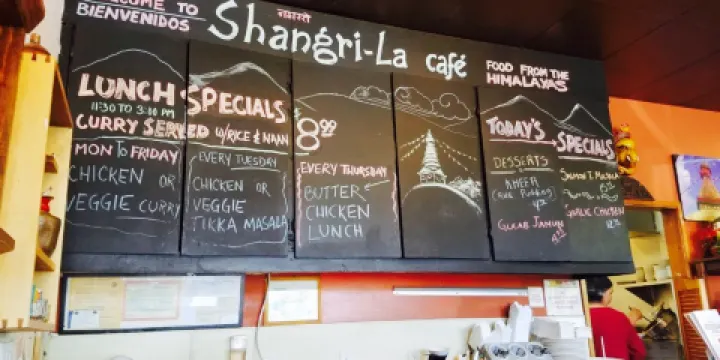 WELCOME TO
BIENVENIDOS
नमस्ते
Shangri-La café
FOOD FROM THE
HIMALAYAS
LUNCH SPECIALS
11:30 TO 3:00 PM
CURRY SERVED W/RICE & NAAN
MON TO FRIDAY
CHICKEN OR
VEGGIE CURRY
EVERY TUESDAY
CHICKEN OR
VEGGIE
TIKKA MASALA
8.99
EVERY THURSDAY
BUTTER
CHICKEN
LUNCH
TODAY'S SPECIALS
DESSERTS
KHEER
(RICE PUDDING)
GULAB JAMUN
SALMON T. MASALA
GARLIC CHICKEN